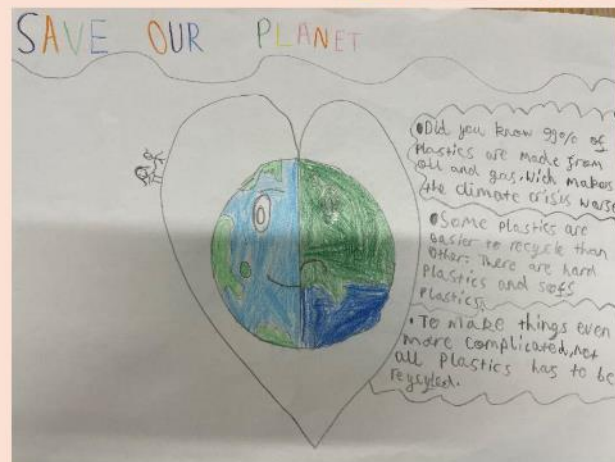 SAVE OUR PLANET
•Did you know 99% of
Plastics are made from
oil and gas, wich makes
the climate crisis worse
•Some plastics are
easier to recycle than
other. There are hard
Plastics and sofs
Plastics.
•To make things even
more complicated, not
all plastics has to be
reycyled.